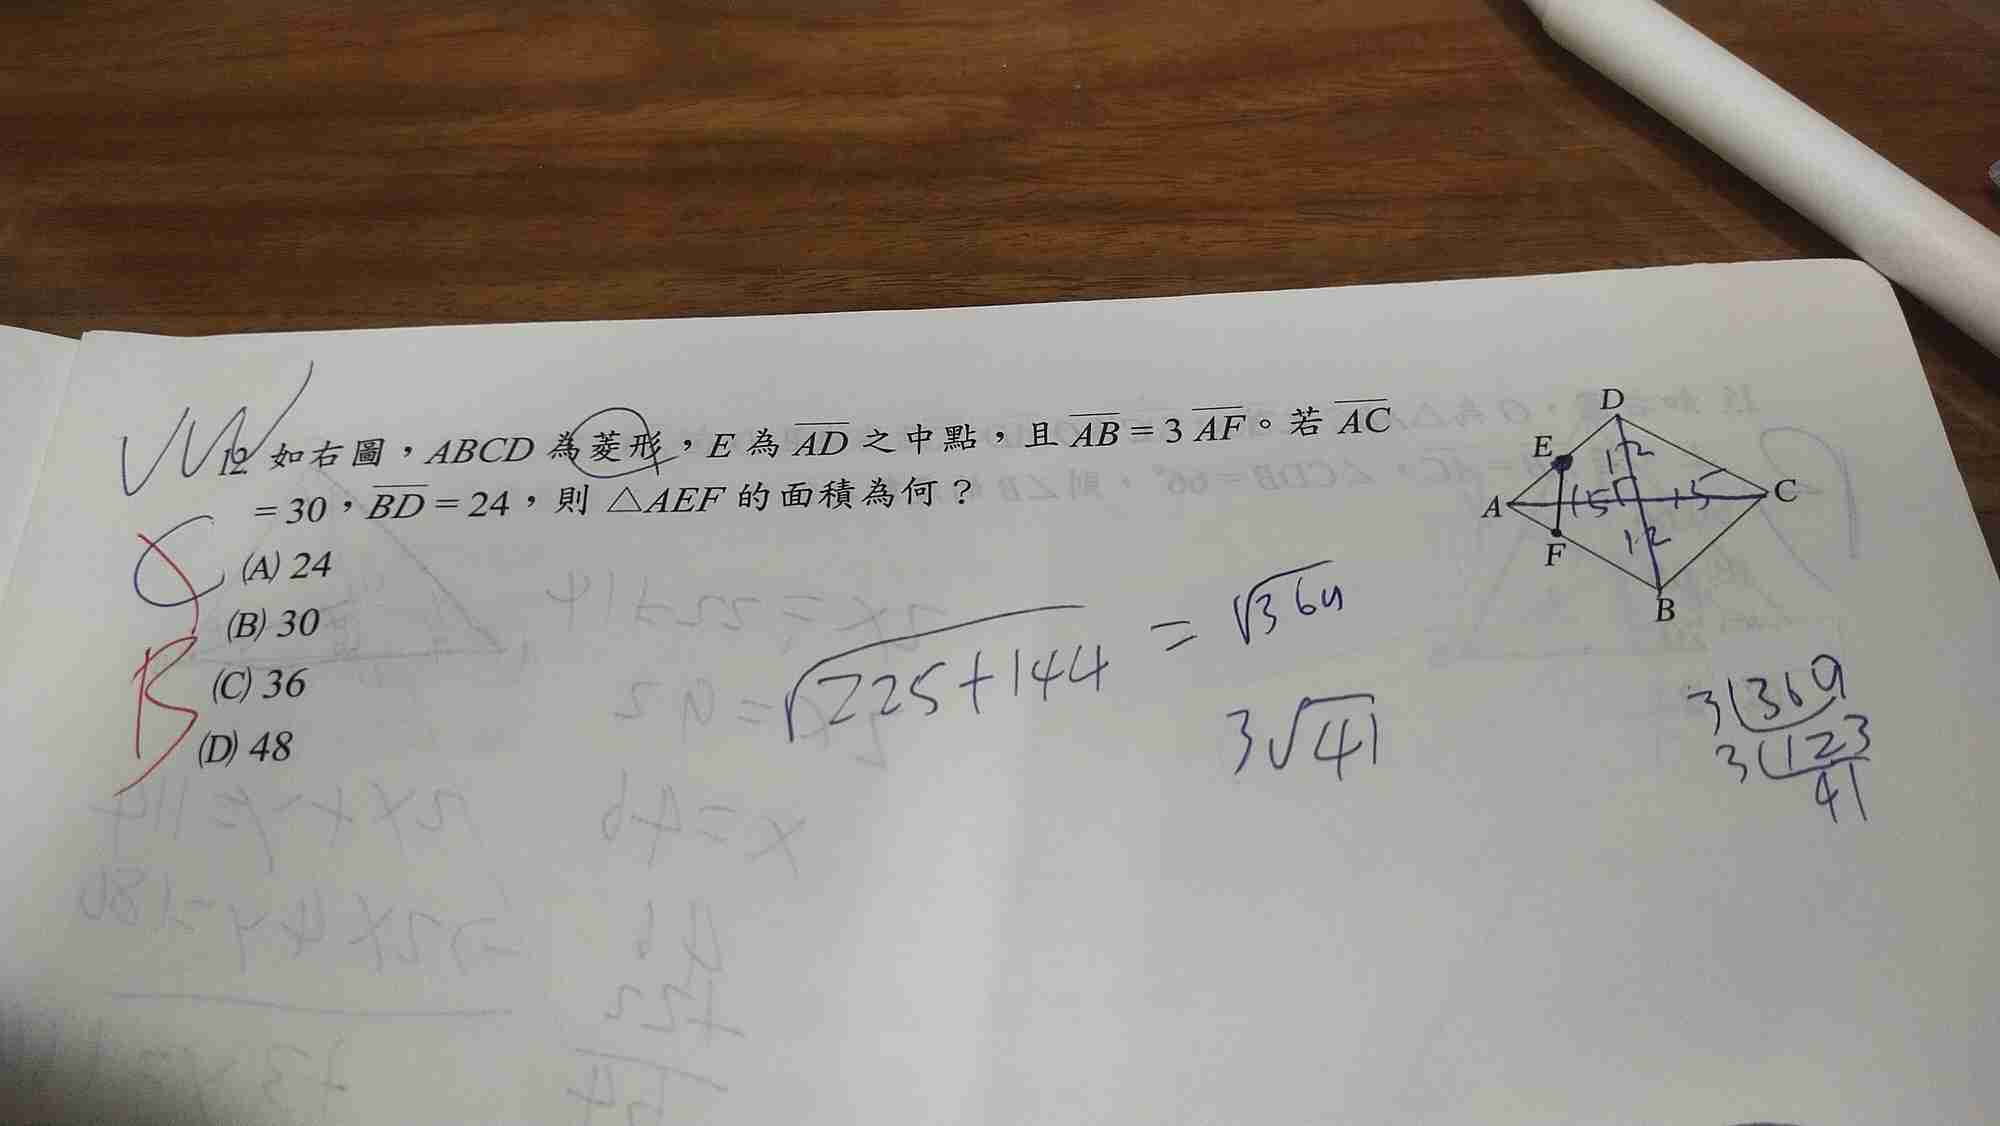 12 如右圖，ABCD 為菱形，E 為 AD 之中點，且 AB = 3 AF。若 AC
= 30，BD = 24，則 △AEF 的面積為何？
(A) 24
(B) 30
(C) 36
(D) 48
C
B
D
E
A
C
F
B
12
15
15
12
√225+144 = √369
3√41
3 369
3 123
41